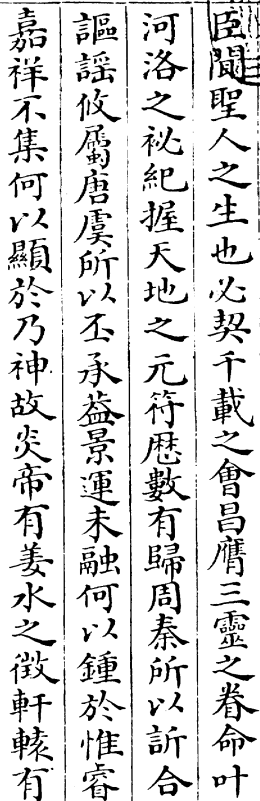 臣聞聖人之生也必契千載之會昌膺三靈之眷命叶
河洛之祕紀握天地之元符厯數有歸周秦所以訢合
謳謡攸屬唐虞所以丕承葢景運未融何以鍾於惟睿
嘉祥不集何以顯於乃神故炎帝有姜水之徴軒轅有